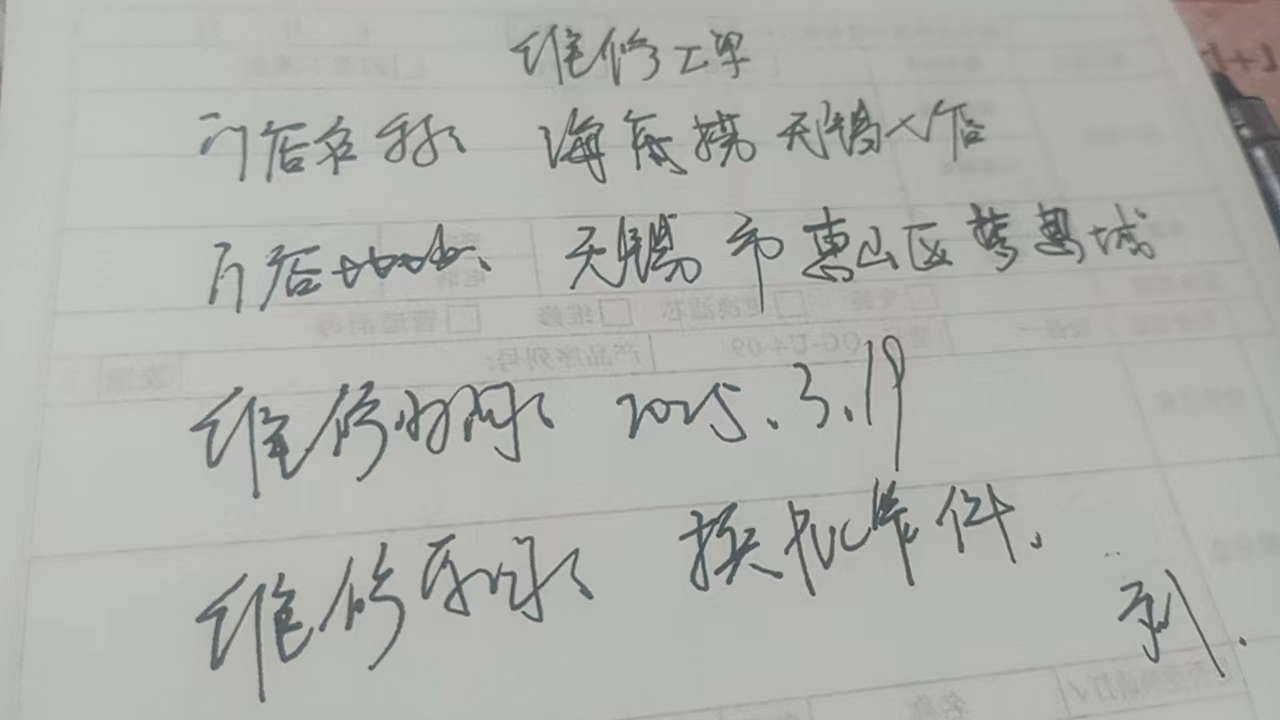 维修工单
门店名称: 海底捞无锡八店
门店地址: 无锡市惠山区万惠城
维修时间: 2025.3.19
维修原因: 换机零件.